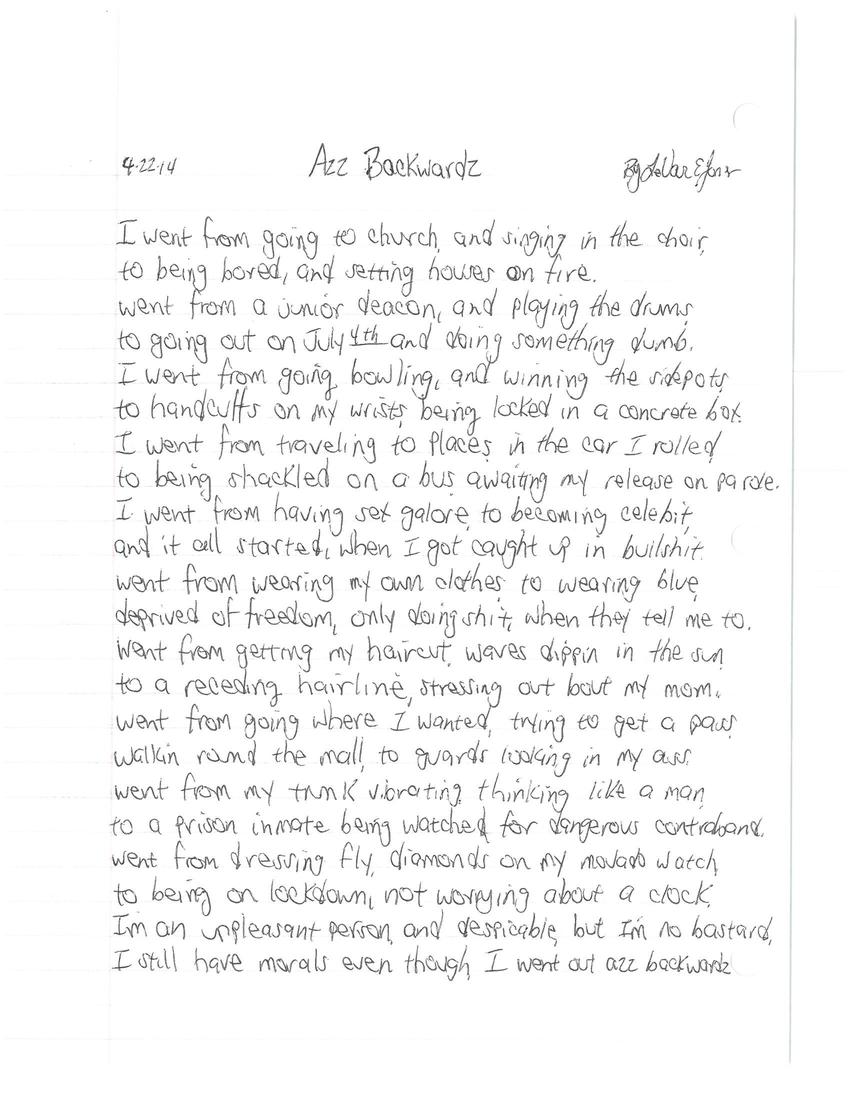 4-22-14 Azz Backwardz By LeVar E Jones
I went from going to church, and singing in the choir,
to being bored, and setting houses on fire.
went from a junior deacon, and playing the drums
to going out on July 4th and doing something dumb.
I went from going bowling, and winning the sidepots
to handcuffs on my wrists, being locked in a concrete box.
I went from traveling to places in the car I rolled
to being shackled on a bus awaiting my release on parole.
I went from having sex galore, to becoming celebit,
and it all started, when I got caught up in bullshit.
went from wearing my own clothes to wearing blue,
deprived of freedom, only doing shit, when they tell me to.
Went from getting my haircut, waves dippin in the sun
to a receding hairline, stressing out bout my mom.
went from going where I wanted, trying to get a pass
walkin round the mall, to guards looking in my ass.
went from my trunk vibrating, thinking like a man,
to a prison inmate being watched for dangerous contraband.
went from dressing fly, diamonds on my movado watch,
to being on lockdown, not worrying about a clock.
I'm an unpleasant person, and despicable, but I'm no bastard,
I still have morals even though, I went out azz backwardz